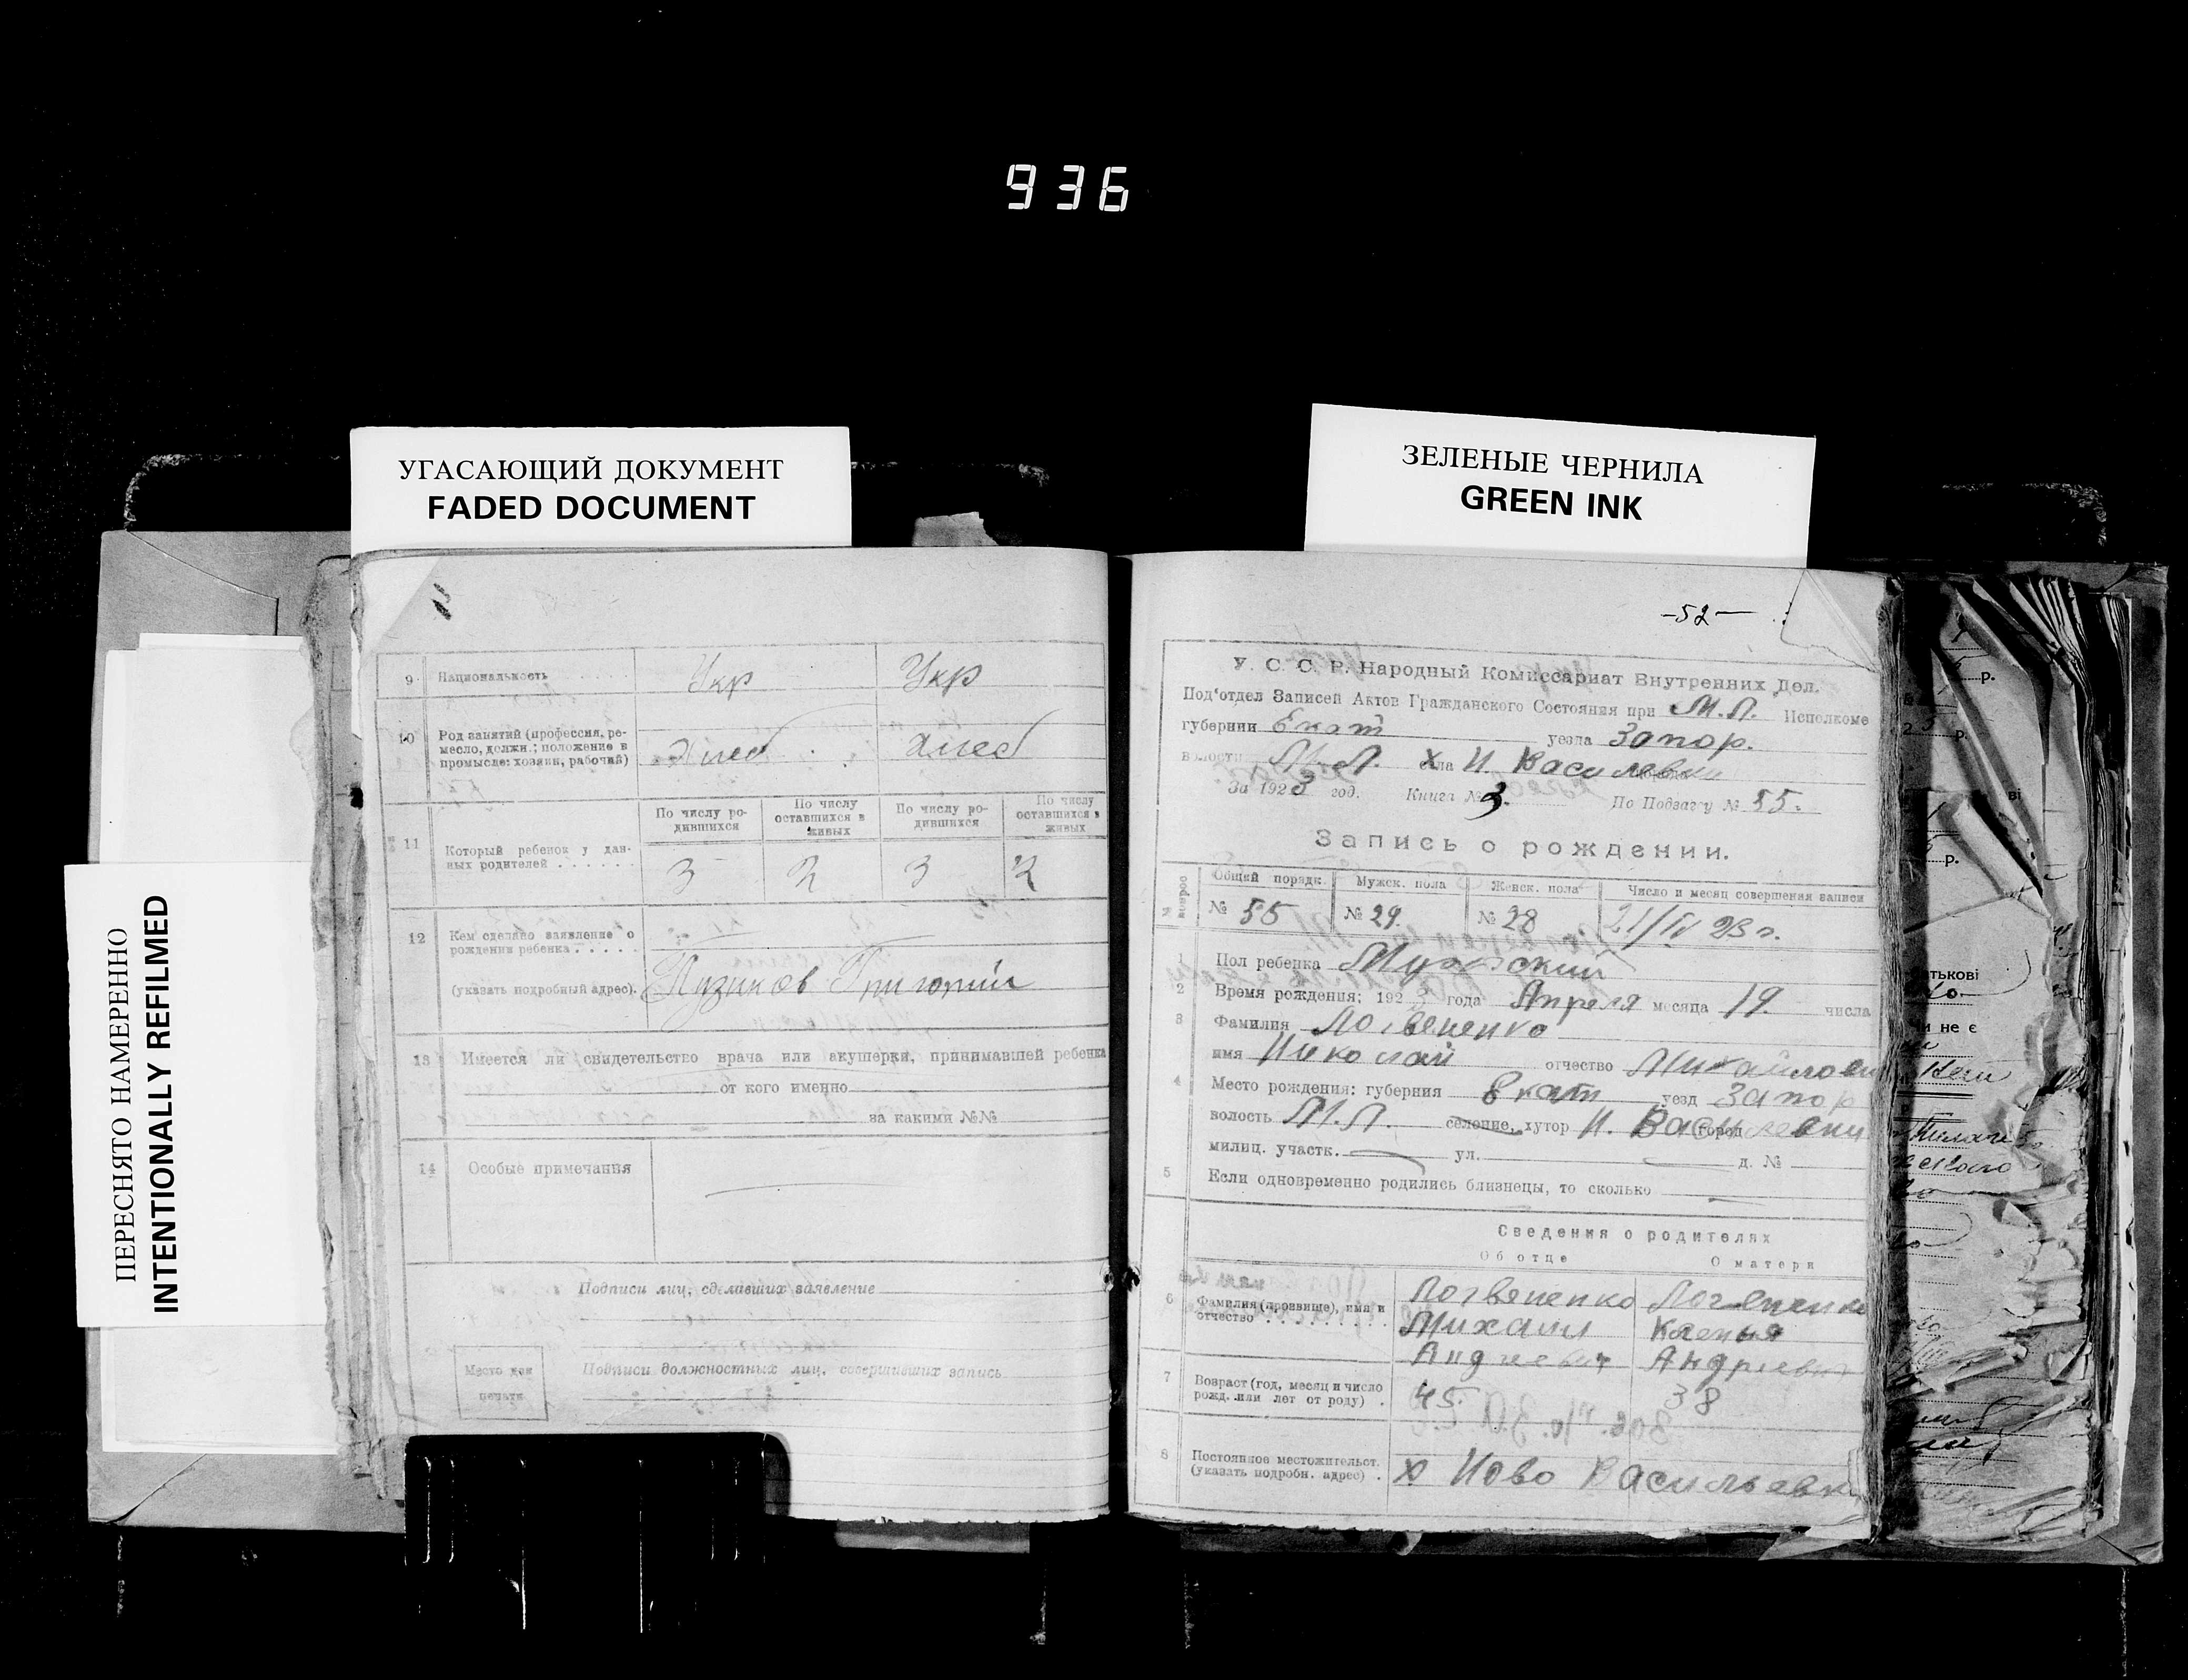 936
УГАСАЮЩИЙ ДОКУМЕНТ
FADED DOCUMENT
ЗЕЛЕНЫЕ ЧЕРНИЛА
GREEN INK
ПЕРЕСНЯТО НАМЕРЕННО
INTENTIONALLY REFILMED
9 Национальность Укр Укр
10 Род занятий (профессия, ре-
месло, должн.; положение в
промысле: хозяин, рабочий) Хлеб Хлеб
По числу ро-дившихся По числу оставшихся в живых По числу ро-дившихся По числу оставшихся в живых
11 Который ребенок у дан-
ных родителей . . . . . . 3 2 3 2
12 Кем сделано заявление о
рождении ребенка . . . . .
(указать подробный адрес). Григорий
13 Имеется ли свидетельство врача или акушерки, принимавшей ребенка
от кого именно
за какими №№
14 Особые примечания
Подписи лиц, сделавших заявление
Место для
печати
Подписи должностных лиц, совершивших запись
-52-
У. С. С. Р. Народный Комиссариат Внутренних Дел.
Под'отдел Записей Актов Гражданского Состояния при М.Л. Исполкоме
губернии Екат уезда Запор.
волости М.Л. Х Н. Василевки
За 1923 год. Книга № 3. По Подзагсу № 55.
Запись о рождении.
Общий порядк. Мужск. пола Женск. пола Число и месяц совершения записи
№ 55 № 29. № 28 21/IV 23 г.
1 Пол ребенка Мужский
2 Время рождения; 1923 года Апреля месяца 19. числа
3 Фамилия Логвененко
имя Николай отчество Михайлов
4 Место рождения: губерния Екат уезд Запор
волость М.Л. селение, хутор Н. Василевки
милиц. участк. ул. д. №
5 Если одновременно родились близнецы, то сколько
Сведения о родителях
Об отце О матери
6 Фамилия (прозвище), имя и
отчество . . . . . . . . .
Логвененко
Михаил
Андреевич
Ксенья
7 Возраст (год, месяц и число
рожд. или лет от роду) . 45. 38
8 Постоянное местожительст.
(указать подробн. адрес) . х Ново Васильевк